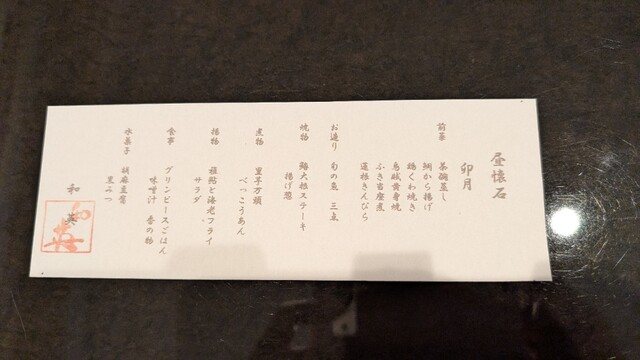 昼懐石
卯月
前菜 茶碗蒸し
鯛から揚げ
鶏くわ焼き
烏賊黄身焼
ふき当座煮
蓮根きんぴら
お造り 旬の魚 三点
焼物 鰤大根ステーキ
揚げ葱
煮物 里芋万頭
べっこうあん
揚物 稚鮎と海老フライ
サラダ
食事 グリンピースごはん
味噌汁 香の物
水菓子 胡麻豆腐
黒みつ
和